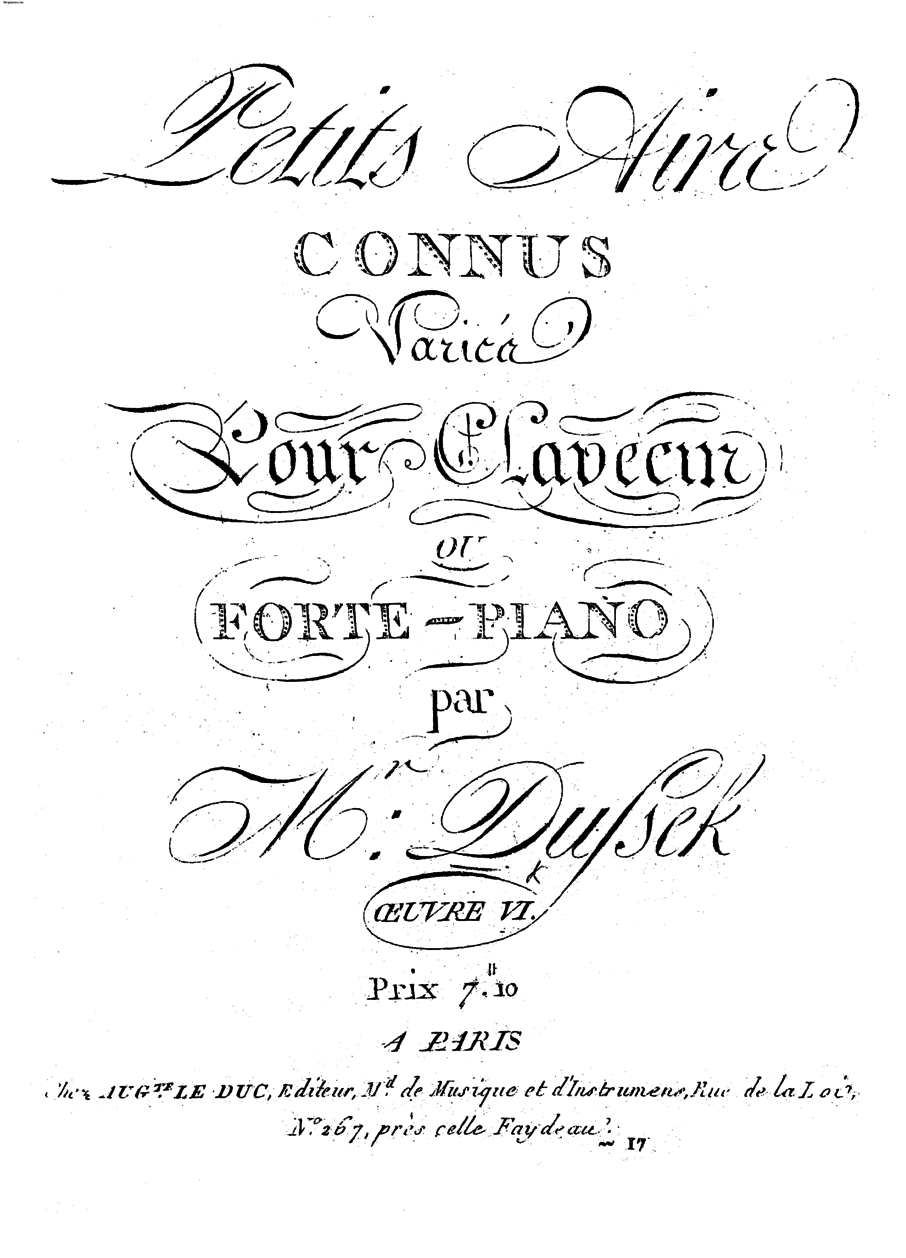 Petits Airs
CONNUS
Variés
Pour Clavecin
ou
FORTE-PIANO
par
Mr: Dussek
ŒUVRE VI.
Prix 7.# 10
A PARIS
Chez AUGTE. LE DUC, Editeur, Md. de Musique et d'Instrumens, Rue de la Loi,
No. 267, près celle Faydeau.
17